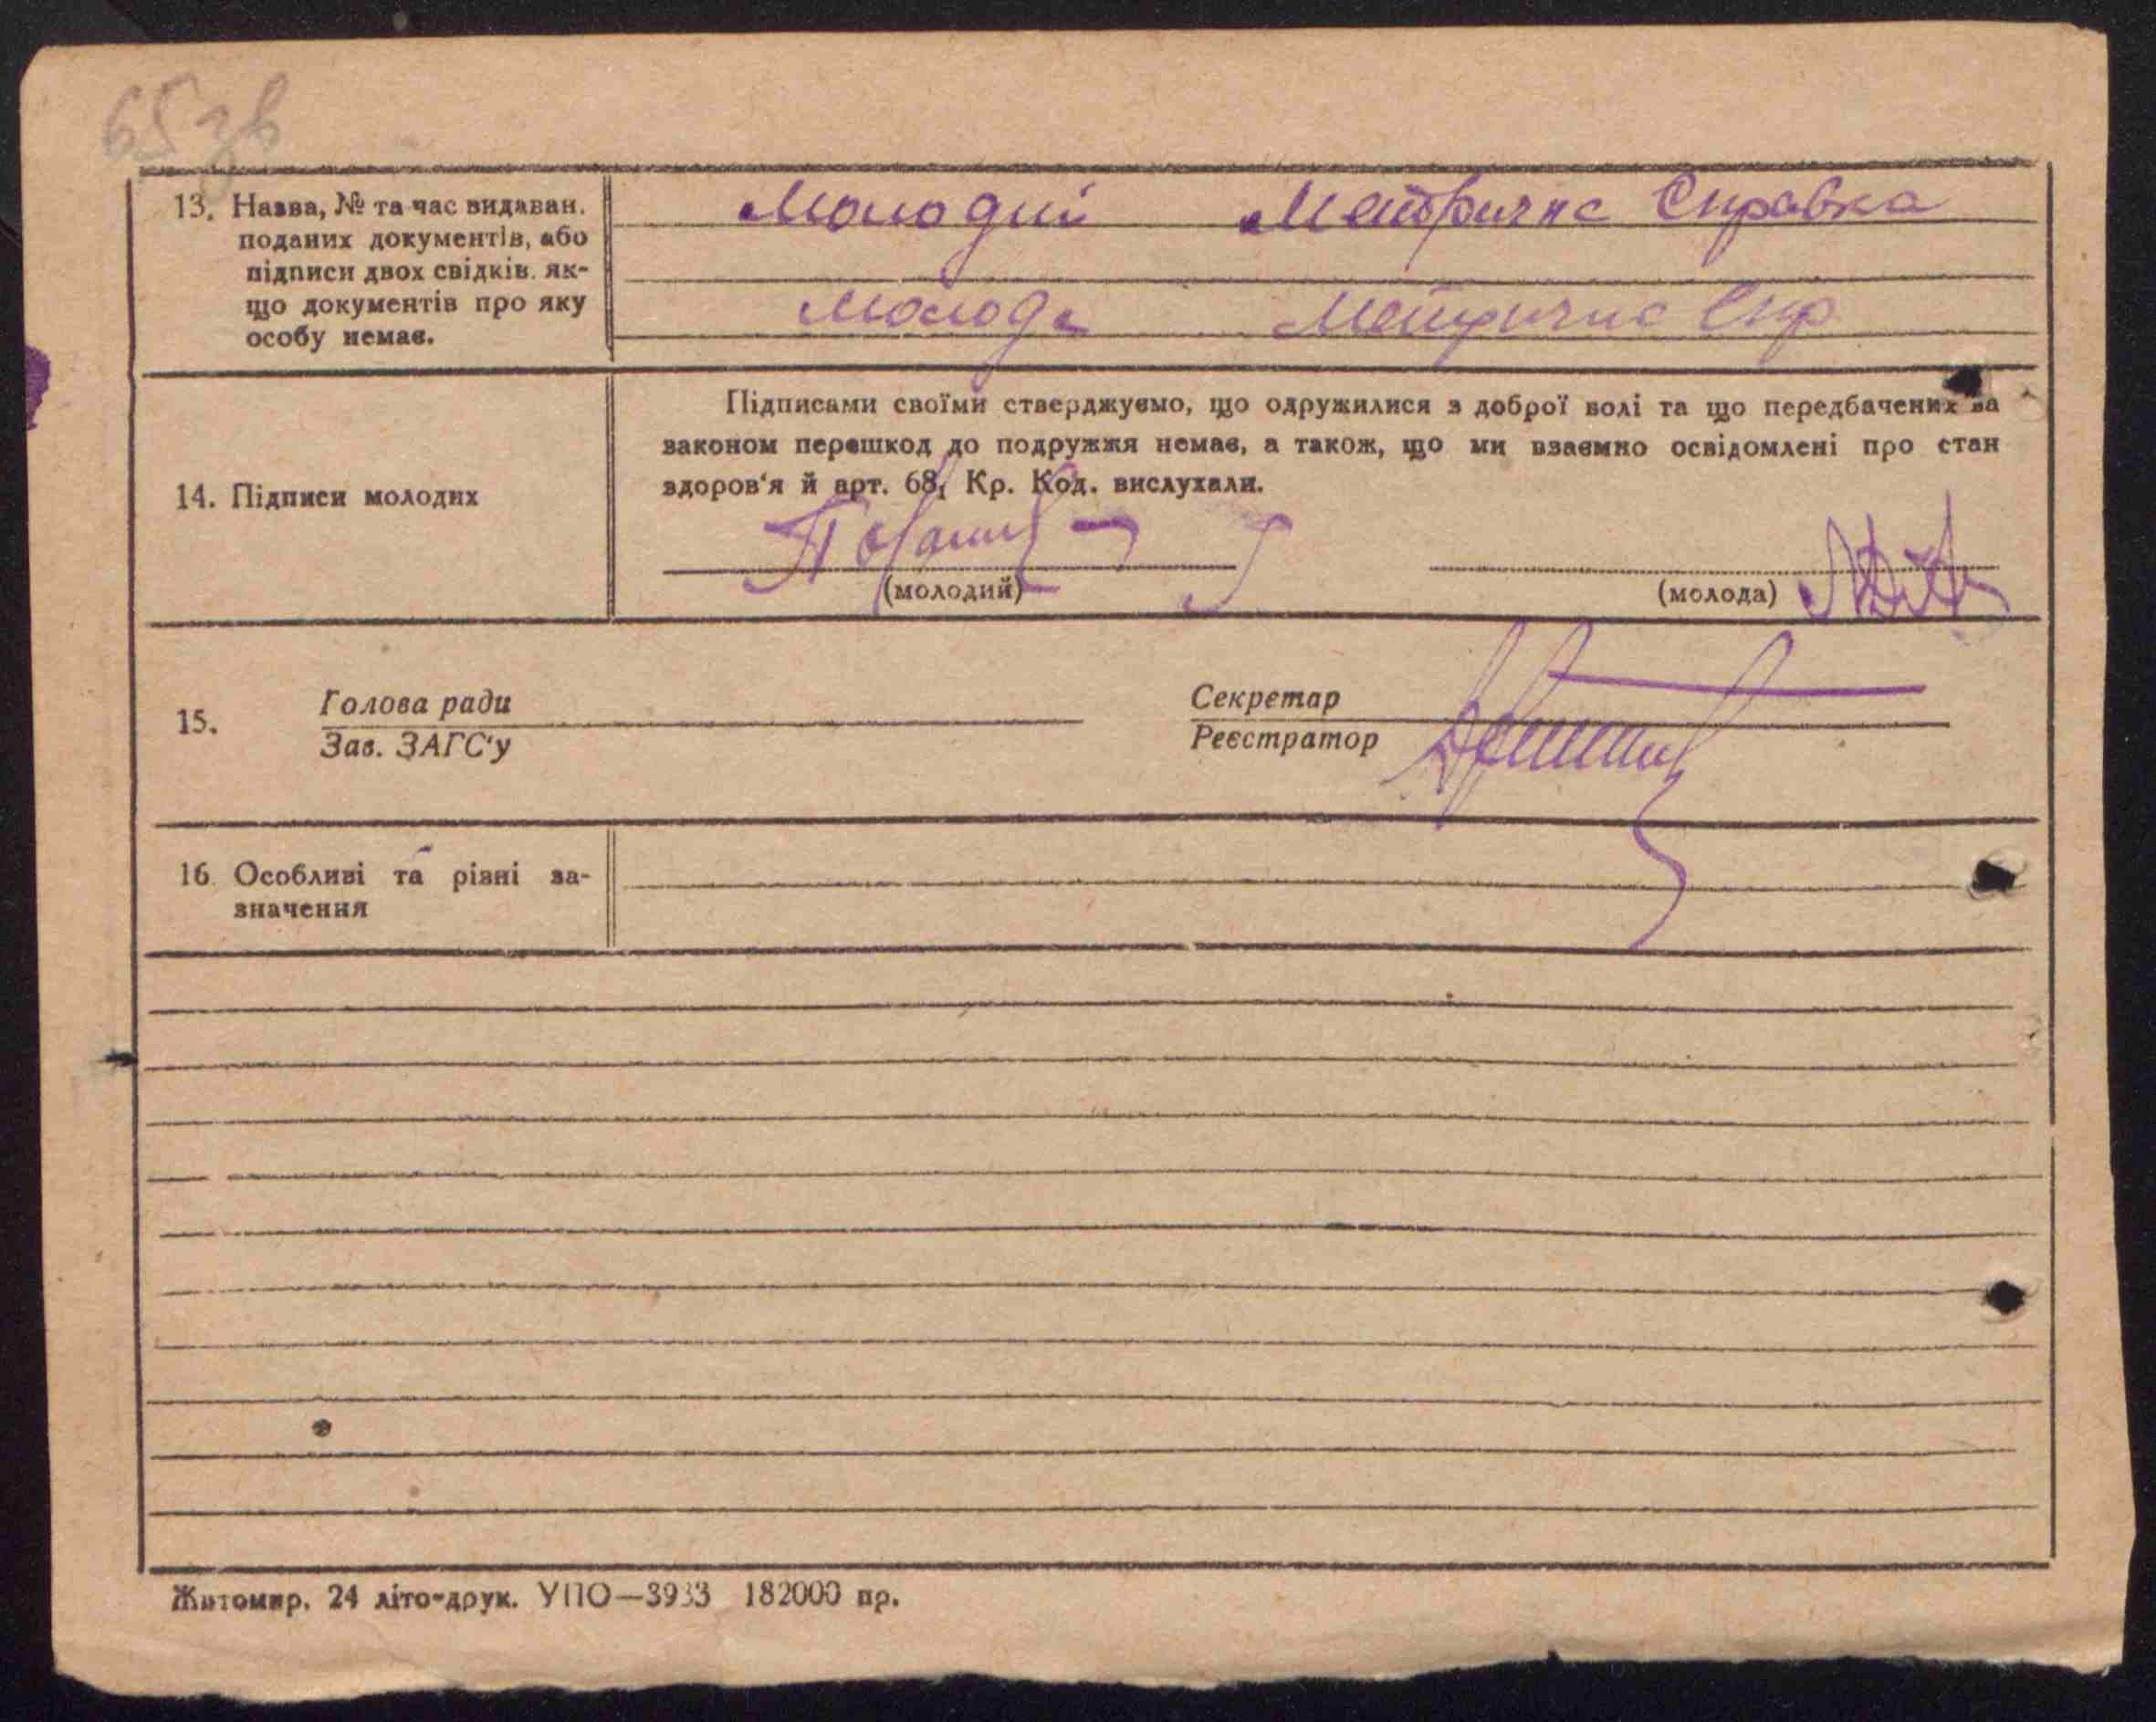 65 зв
13. Назва, № та час видаван.
поданих документів, або
підписи двох свідків. як-
що документів про яку
особу немає.
Молодий Метрична Справка
Молода Метрична Спр
14. Підписи молодих
Підписами своїми стверджуємо, що одружилися з доброї волі та що передбачених за
законом перешкод до подружжя немає, а також, що ми взаємно освідомлені про стан
здоров'я й арт. 68, Кр. Код. вислухали.
(молодий)
(молода)
15.
Голова ради
Зав. ЗАГС'у
Секретар
Реєстратор
16. Особливі та різні за-
значення
Житомир. 24 літо-друк. УПО—3933 182000 пр.